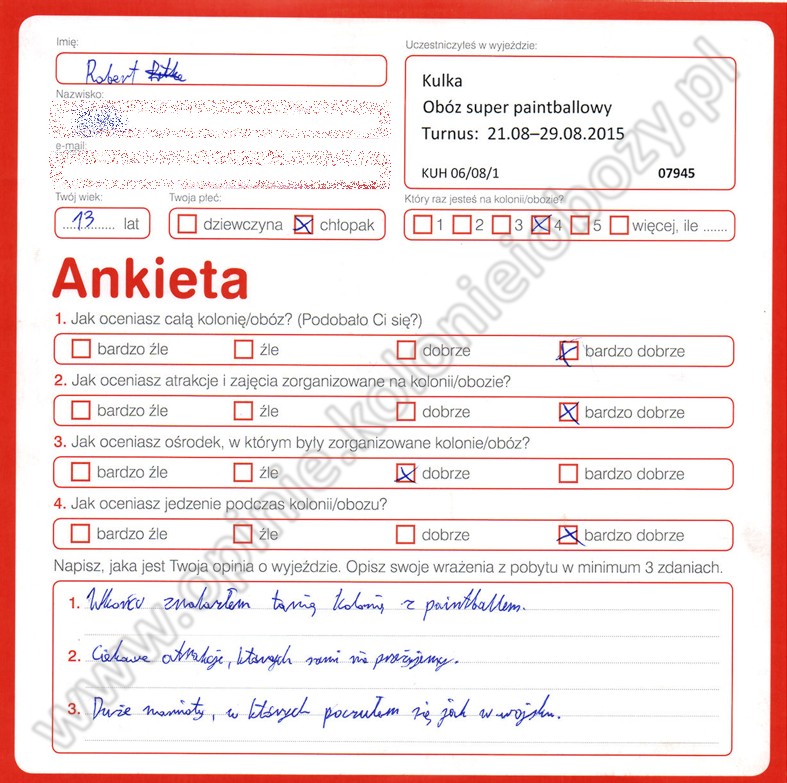 Imię:
Robert
Uczestniczyłeś w wyjeździe:
Kulka
Obóz super paintballowy
Turnus: 21.08–29.08.2015
KUH 06/08/1 07945
Nazwisko:
e-mail
Twój wiek:
13 lat
Twoja płeć:
dziewczyna chłopak
Który raz jesteś na kolonii/obozie?
1 2 3 4 5 więcej, ile .......
Ankieta
1. Jak oceniasz całą kolonię/obóz? (Podobało Ci się?)
bardzo źle źle dobrze bardzo dobrze
2. Jak oceniasz atrakcje i zajęcia zorganizowane na kolonii/obozie?
bardzo źle źle dobrze bardzo dobrze
3. Jak oceniasz ośrodek, w którym były zorganizowane kolonie/obóz?
bardzo źle źle dobrze bardzo dobrze
4. Jak oceniasz jedzenie podczas kolonii/obozu?
bardzo źle źle dobrze bardzo dobrze
Napisz, jaka jest Twoja opinia o wyjeździe. Opisz swoje wrażenia z pobytu w minimum 3 zdaniach.
1. Wkońcu znalazłem tanią kolonię z paintballem.
2. Ciekawe atrakcje, których sami nie przeżyjemy.
3. Duże namioty, w których poczułem się jak w wojsku.
www.opinie.kolonieiobozy.pl